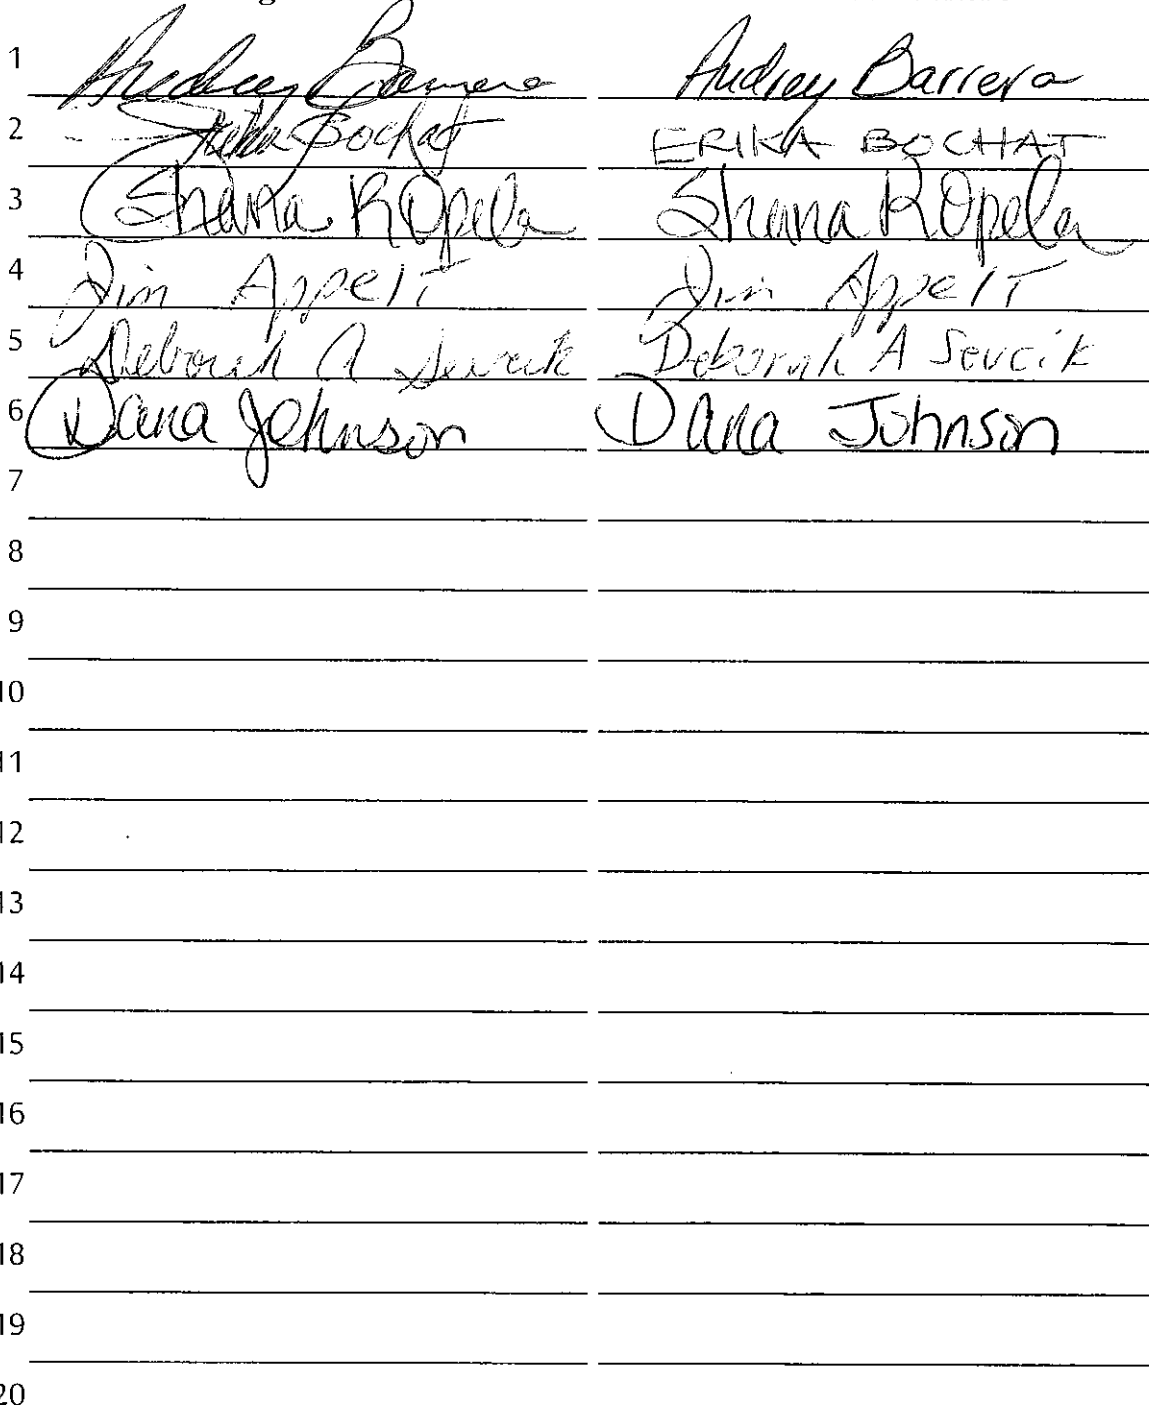 1 Audrey Barrera Audrey Barrera
2 Erika Bochat ERIKA BOCHAT
3 Shana R Opela Shana R Opela
4 Jim Appelt Jim Appelt
5 Deborah A Sevcik Deborah A Sevcik
6 Dana Johnson Dana Johnson
7
8
9
10
11
12
13
14
15
16
17
18
19
20